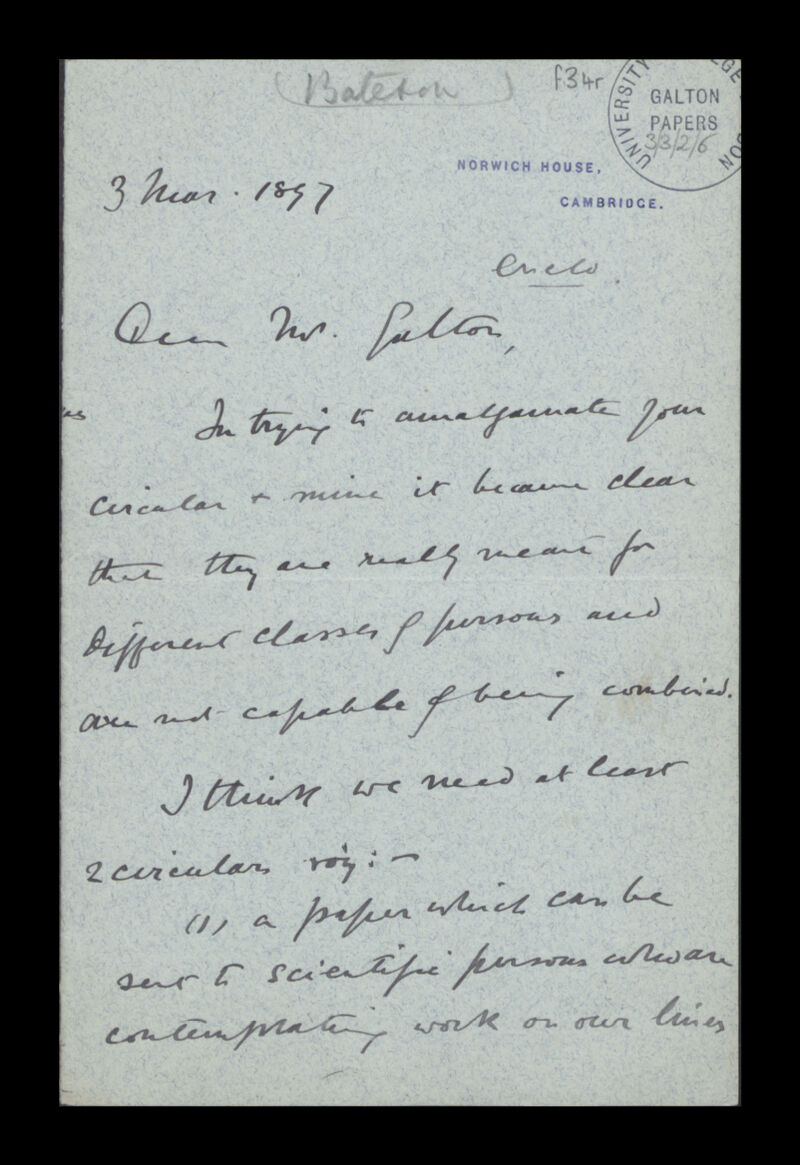 (Bateson)
f34r
UNIVERSITY
GALTON
PAPERS
3/3/2/6
NORWICH HOUSE,
CAMBRIDGE.
3 Mar. 1897
Dear Mr. Galton,
In trying to amalgamate your
circular + mine it became clear
that they are really meant for
different classes of persons and
are not capable of being combined.
I think we need at least
2 circulars viz: -
(1) a paper which can be
sent to scientific persons who are
contemplating work on our lines